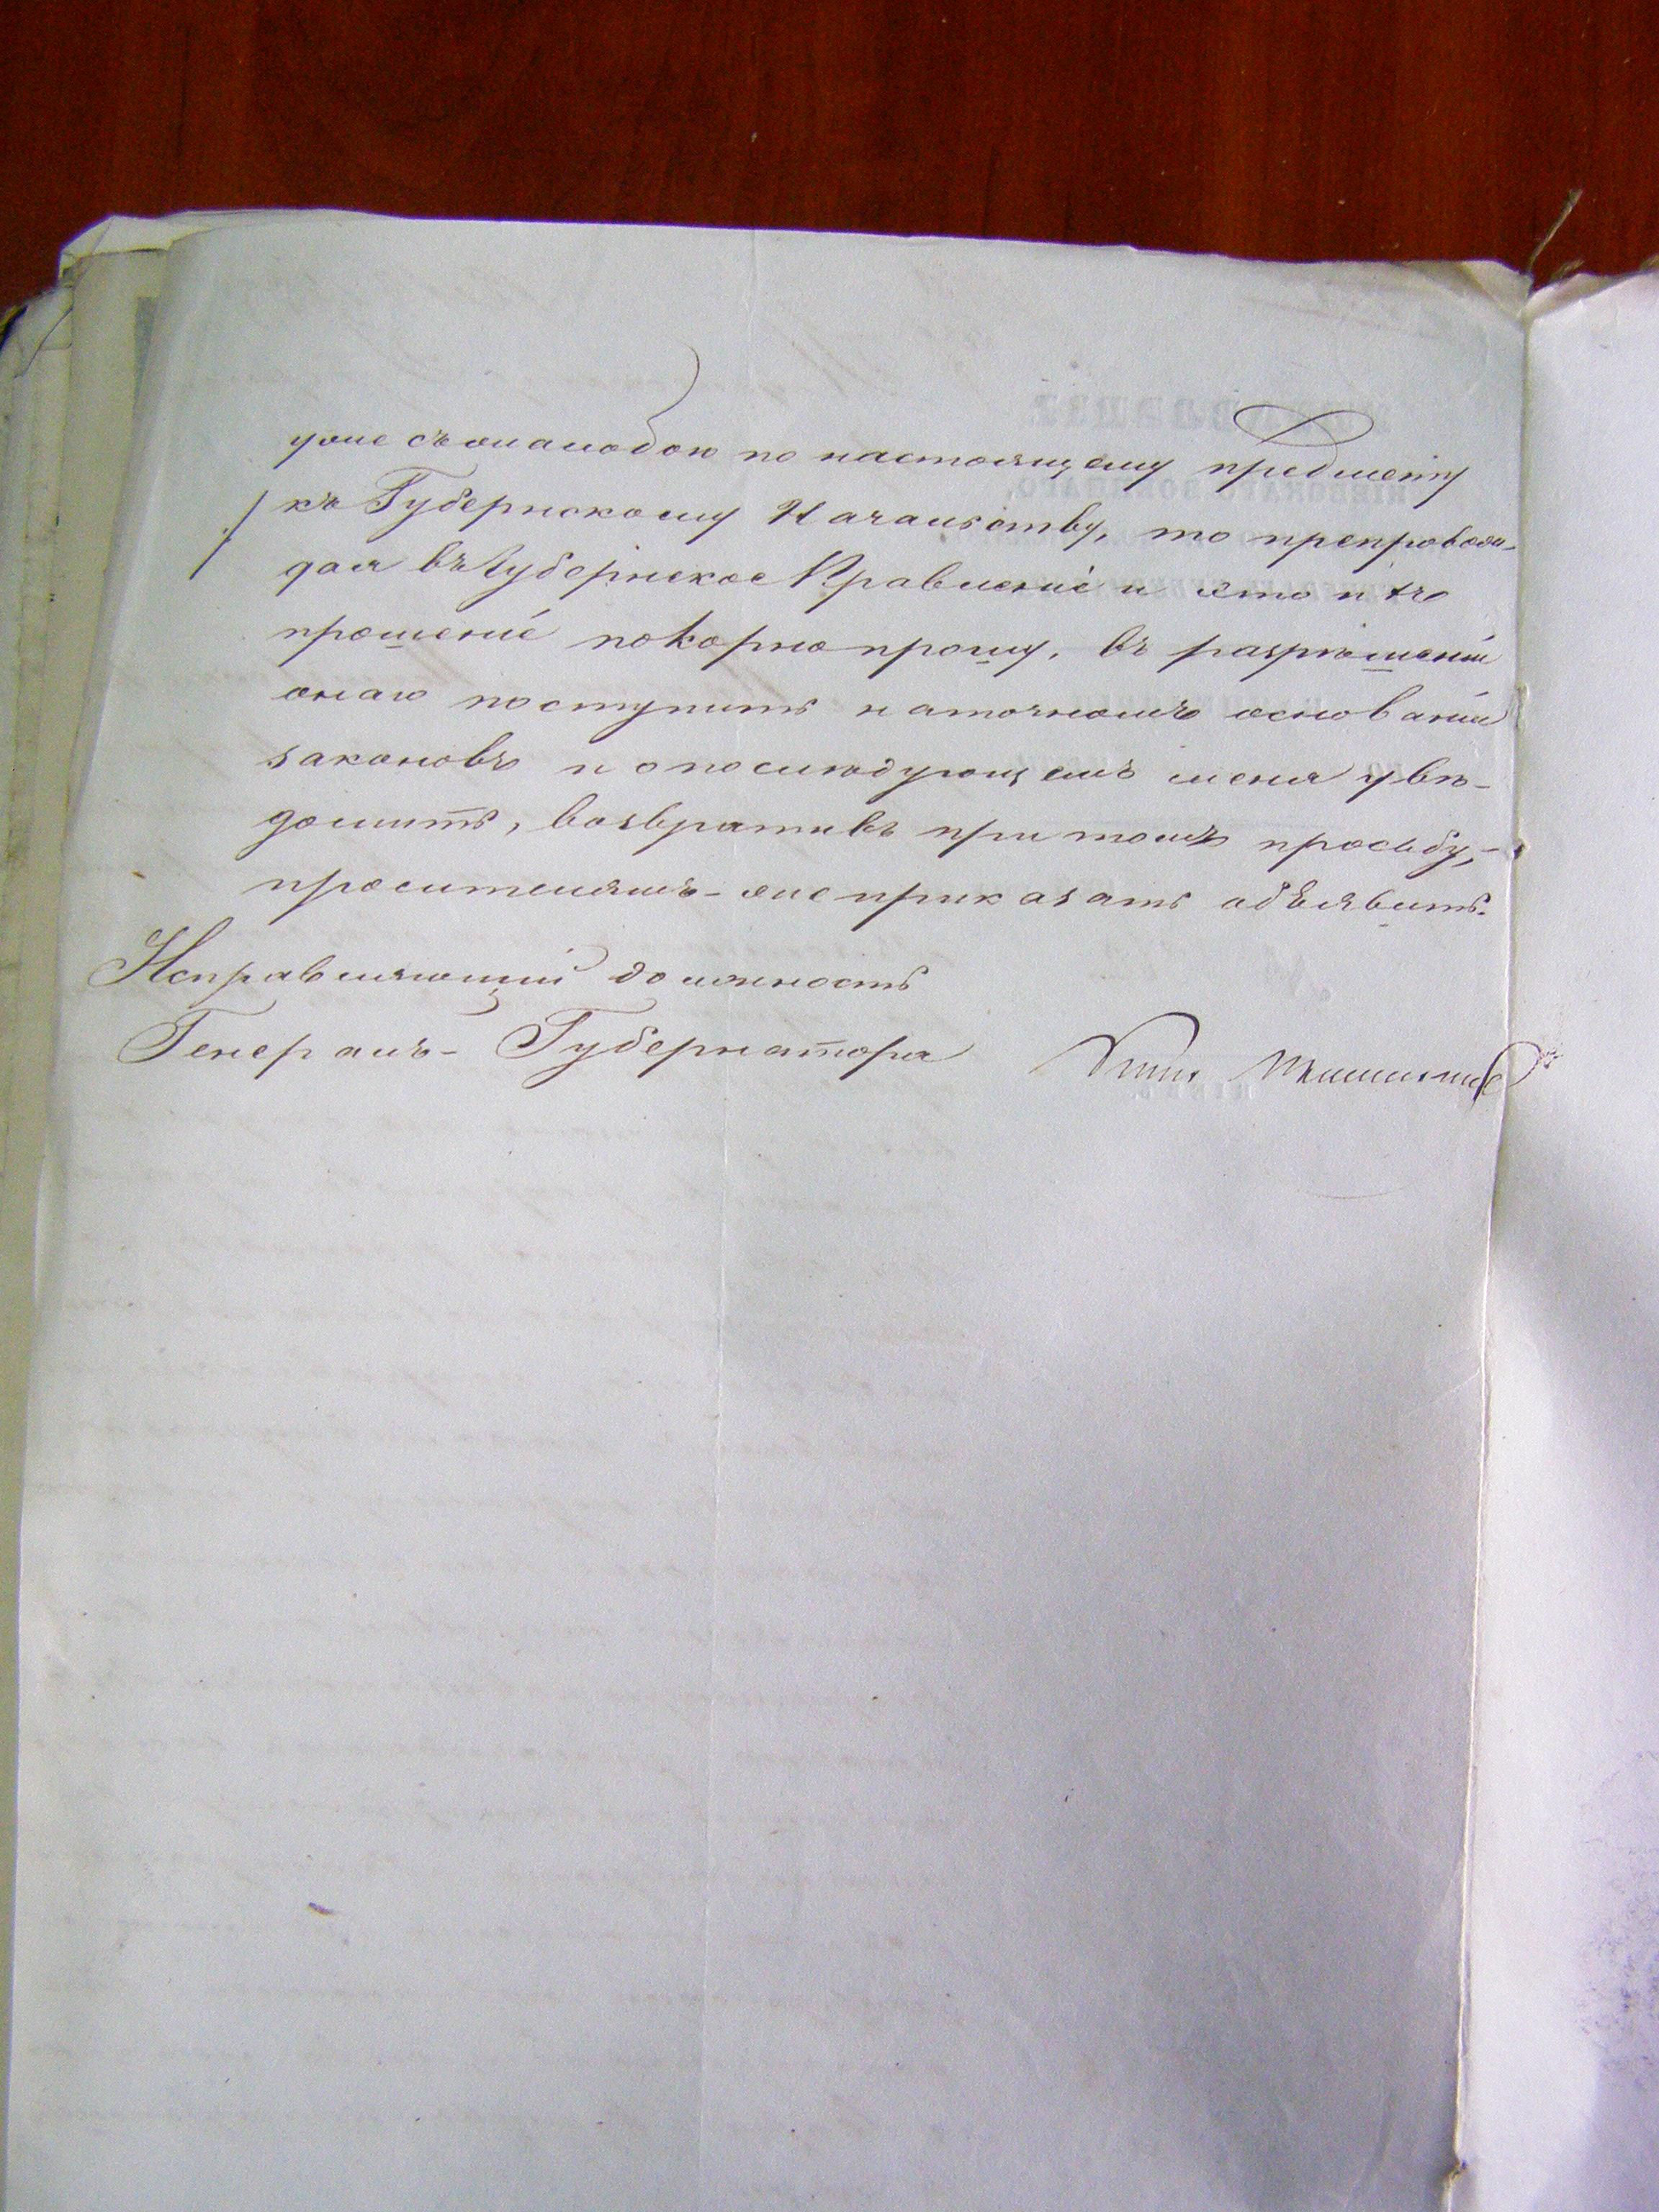 уже съ жалобою по настоящему предмету
къ Губернскому Начальству, то препровож-
дая въ Губернское Правленіе и это ихъ
прошеніе покорно прошу, въ разрѣшеніи
онаго поступить на точномъ основаніи
законовъ и о послѣдующемъ меня увѣ-
домить, возвративъ при томъ просьбу,-
просителямъ-же приказать объявить.
Исправляющій должность
Генералъ-Губернатора